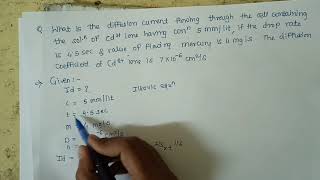 Q. What is the diffusion current flowing through the cell containing
the solⁿ of Cd²⁺ ions having concⁿ 5 mmol/lit, if the drop rate
is 4.5 sec & value of flowing mercury is 4 mg/s. The diffusion
coefficient of Cd²⁺ ions is 7×10⁻⁶ cm²/s
→ Given:-
Id = ?
Ilkovic eqⁿ
C = 5 mmol/lit
t = 4.5 sec
m mg/s
D = cm²/s
Id =